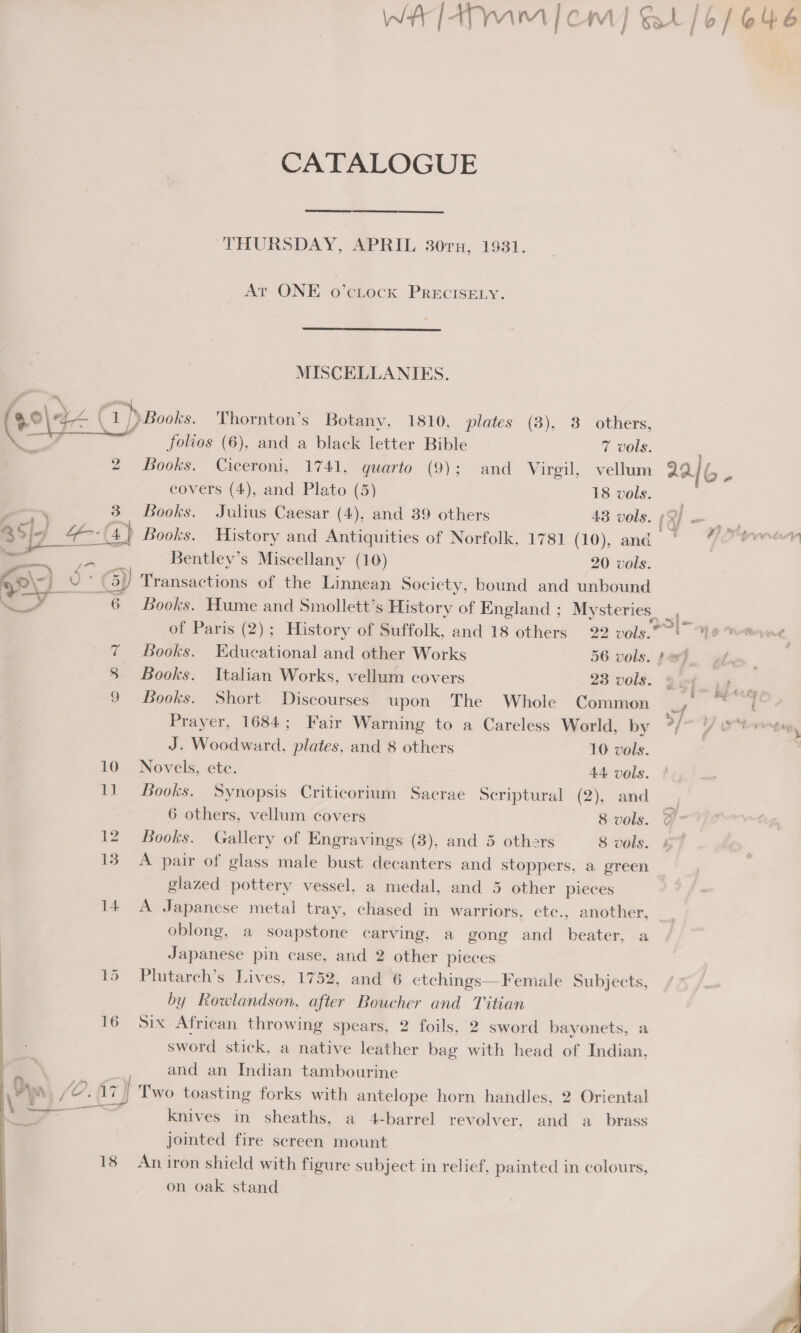 WA/HMM/CM/Sal/6/646
CATALOGUE
THURSDAY, APRIL 30TH, 1931.
AT ONE O'CLOCK PRECISELY.
MISCELLANIES.
1 Books. Thornton's Botany, 1810, plates (3), 3 others,
folios (6), and a black letter Bible 7 vols.
2 Books. Ciceroni, 1741, quarto (9); and Virgil, vellum 22/6
covers (4), and Plato (5) 18 vols.
3 Books. Julius Caesar (4), and 39 others 43 vols.
35/- 4 Books. History and Antiquities of Norfolk, 1781 (10), and
Bentley's Miscellany (10) 20 vols.
5 Transactions of the Linnean Society, bound and unbound
6 Books. Hume and Smollett's History of England; Mysteries
of Paris (2); History of Suffolk, and 18 others 22 vols.
7 Books. Educational and other Works 56 vols.
8 Books. Italian Works, vellum covers 23 vols.
9 Books. Short Discourses upon The Whole Common
Prayer, 1684; Fair Warning to a Careless World, by
J. Woodward, plates, and 8 others 10 vols.
10 Novels, etc. 44 vols.
11 Books. Synopsis Criticorium Sacrae Scriptural (2), and
6 others, vellum covers 8 vols.
12 Books. Gallery of Engravings (3), and 5 others 8 vols.
13 A pair of glass male bust decanters and stoppers, a green
glazed pottery vessel, a medal, and 5 other pieces
14 A Japanese metal tray, chased in warriors, etc., another,
oblong, a soapstone carving, a gong and beater, a
Japanese pin case, and 2 other pieces
15 Plutarch's Lives, 1752, and 6 etchings—Female Subjects,
by Rowlandson, after Boucher and Titian
16 Six African throwing spears, 2 foils, 2 sword bayonets, a
sword stick, a native leather bag with head of Indian,
and an Indian tambourine
17 Two toasting forks with antelope horn handles, 2 Oriental
knives in sheaths, a 4-barrel revolver, and a brass
jointed fire screen mount
18 An iron shield with figure subject in relief, painted in colours,
on oak stand